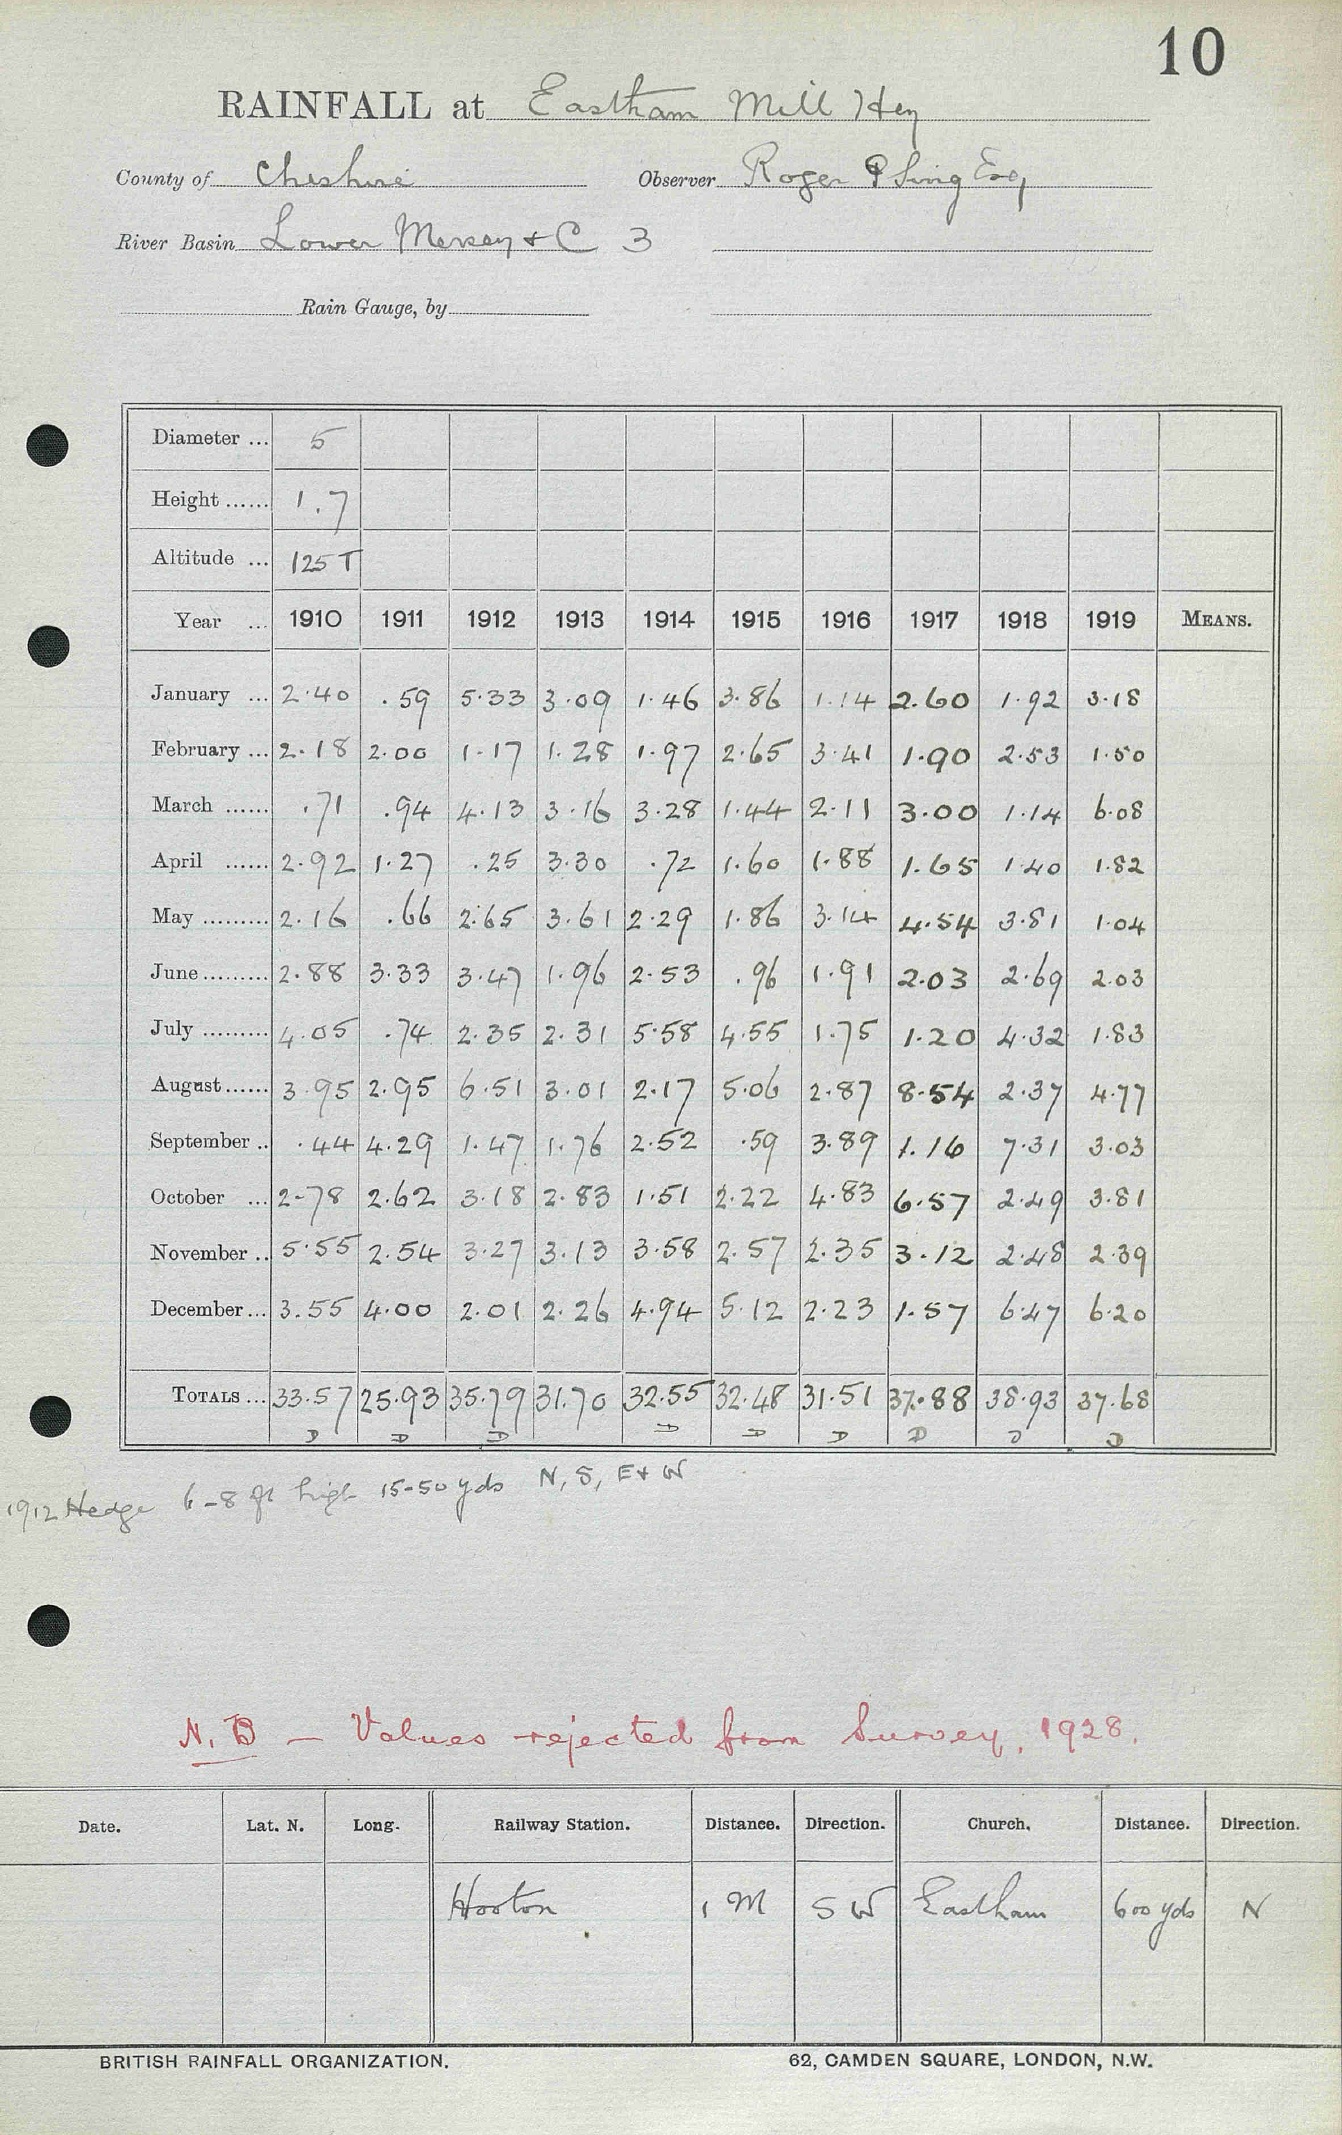 10
RAINFALL at Eastham Mill Hey
County of Cheshire Observer Roger P Sing Esq
River Basin Lower Mersey & C 3
Rain Gauge, by
Diameter ... 5
Height ...... 1.7
Altitude ... 125 T
Year ... 1910 1911 1912 1913 1914 1915 1916 1917 1918 1919 MEANS.
January ... 2.40 .59 5.33 3.09 1.46 3.86 1.14 2.60 1.92 3.18
February ... 2.18 2.00 1.17 1.28 1.97 2.65 3.41 1.90 2.53 1.50
March ...... .71 .94 4.13 3.16 3.28 1.44 2.11 3.00 1.14 6.08
April ...... 2.92 1.27 .25 3.30 .72 1.60 1.88 1.65 1.40 1.82
May ......... 2.16 .66 2.65 3.61 2.29 1.86 3.14 4.54 3.81 1.04
June ......... 2.88 3.33 3.47 1.96 2.53 .96 1.91 2.03 2.69 2.03
July ......... 4.05 .74 2.35 2.31 5.58 4.55 1.75 1.20 4.32 1.83
August ...... 3.95 2.95 6.51 3.01 2.17 5.06 2.87 8.54 2.37 4.77
September .. .44 4.29 1.47 1.76 2.52 .59 3.89 1.16 7.31 3.03
October ... 2-78 2.62 3.18 2.83 1.51 2.22 4.83 6.57 2.49 3.81
November .. 5.55 2.54 3.27 3.13 3.58 2.57 2.35 3.12 2.48 2.39
December ... 3.55 4.00 2.01 2.26 4.94 5.12 2.23 1.57 6.47 6.20
TOTALS ... 33.57 25.93 35.79 31.70 32.55 32.48 31.51 37.88 38.93 37.68
D D D D D D D D D
1912 Hedge 6-8 ft high 15-50 yds N, S, E & W
N.B — Values rejected from Survey, 1928.
Date. Lat. N. Long. Railway Station. Distance. Direction. Church. Distance. Direction.
Hooton 1 M S W Eastham 600 yds N
BRITISH RAINFALL ORGANIZATION. 62, CAMDEN SQUARE, LONDON, N.W.